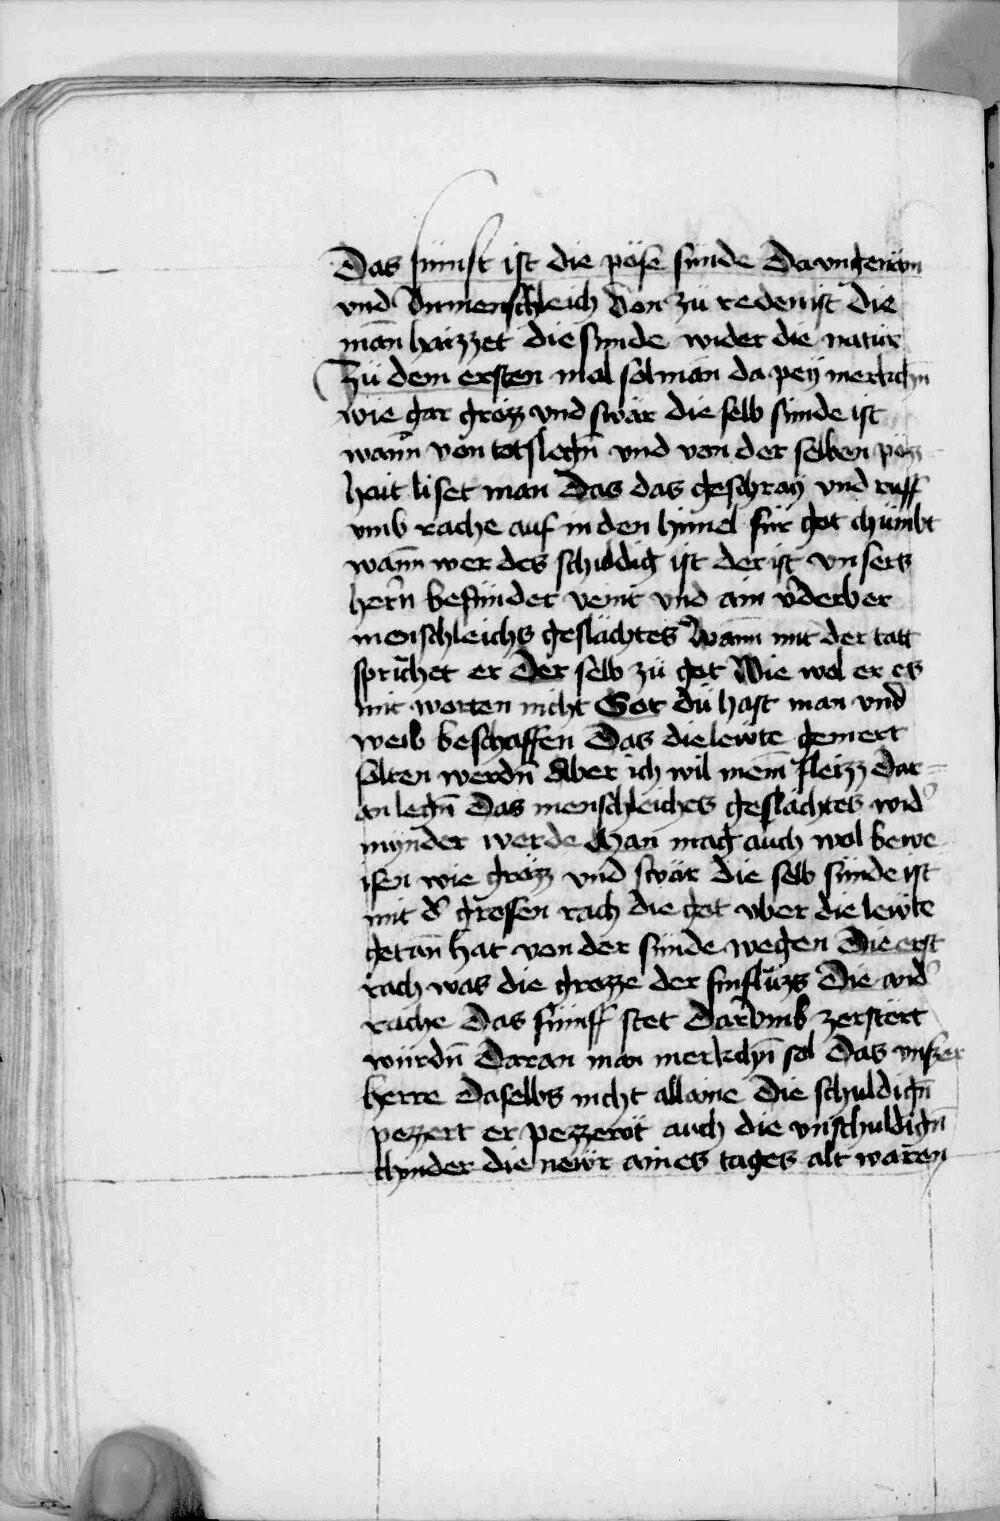 Das fünift ist die pöse sünde Da vngenäm
vnd Vnmenschleich von zü reden ist die
man̄ haizzet die sünde wider die natür
Zü dem ersten mal sol man da peÿ merkchn̄
wie gar gröz vnd swär die selb sünde ist
wann̄ von totslegn̄ vnd von der selben pöz
hait liset man Das das geschraÿ vnd rüff
vmb rache auf in den himel für got chümbt
wann̄ wer des schuldig ist der ist vnsers
herrn̄ besünder veint vnd ain v̄derber
menschleichs geslächtes Wann̄ mit der tatt
sprichet er Der selb zü got Wie wol er es
mit worten nicht Got dü hast man vnd
weib beschaffen Das die lewte gemert
solten werdn̄ Aber ich wil mein̄ fleizz dar
an legn̄ Das menschleiches geslächtes wid̾
mÿnder werde Man mag auch wol bewe
isen wie gröz vnd swär die selb sünde ist
mit d̾ grossen rach die got vber die lewte
getan̄ hat von der sünde wegen Die erst
rach was die grozze der sinflüzs Die and̾
rache Das fümff stet Darvmb zerstört
würdn̄ Daran man merkchn̄ sol Das vnser
herre Daselbs nicht allaine Die schuldign̄
pezzert er pezzerot auch die vnschuldign̄
chynder die newr aines tages alt waren